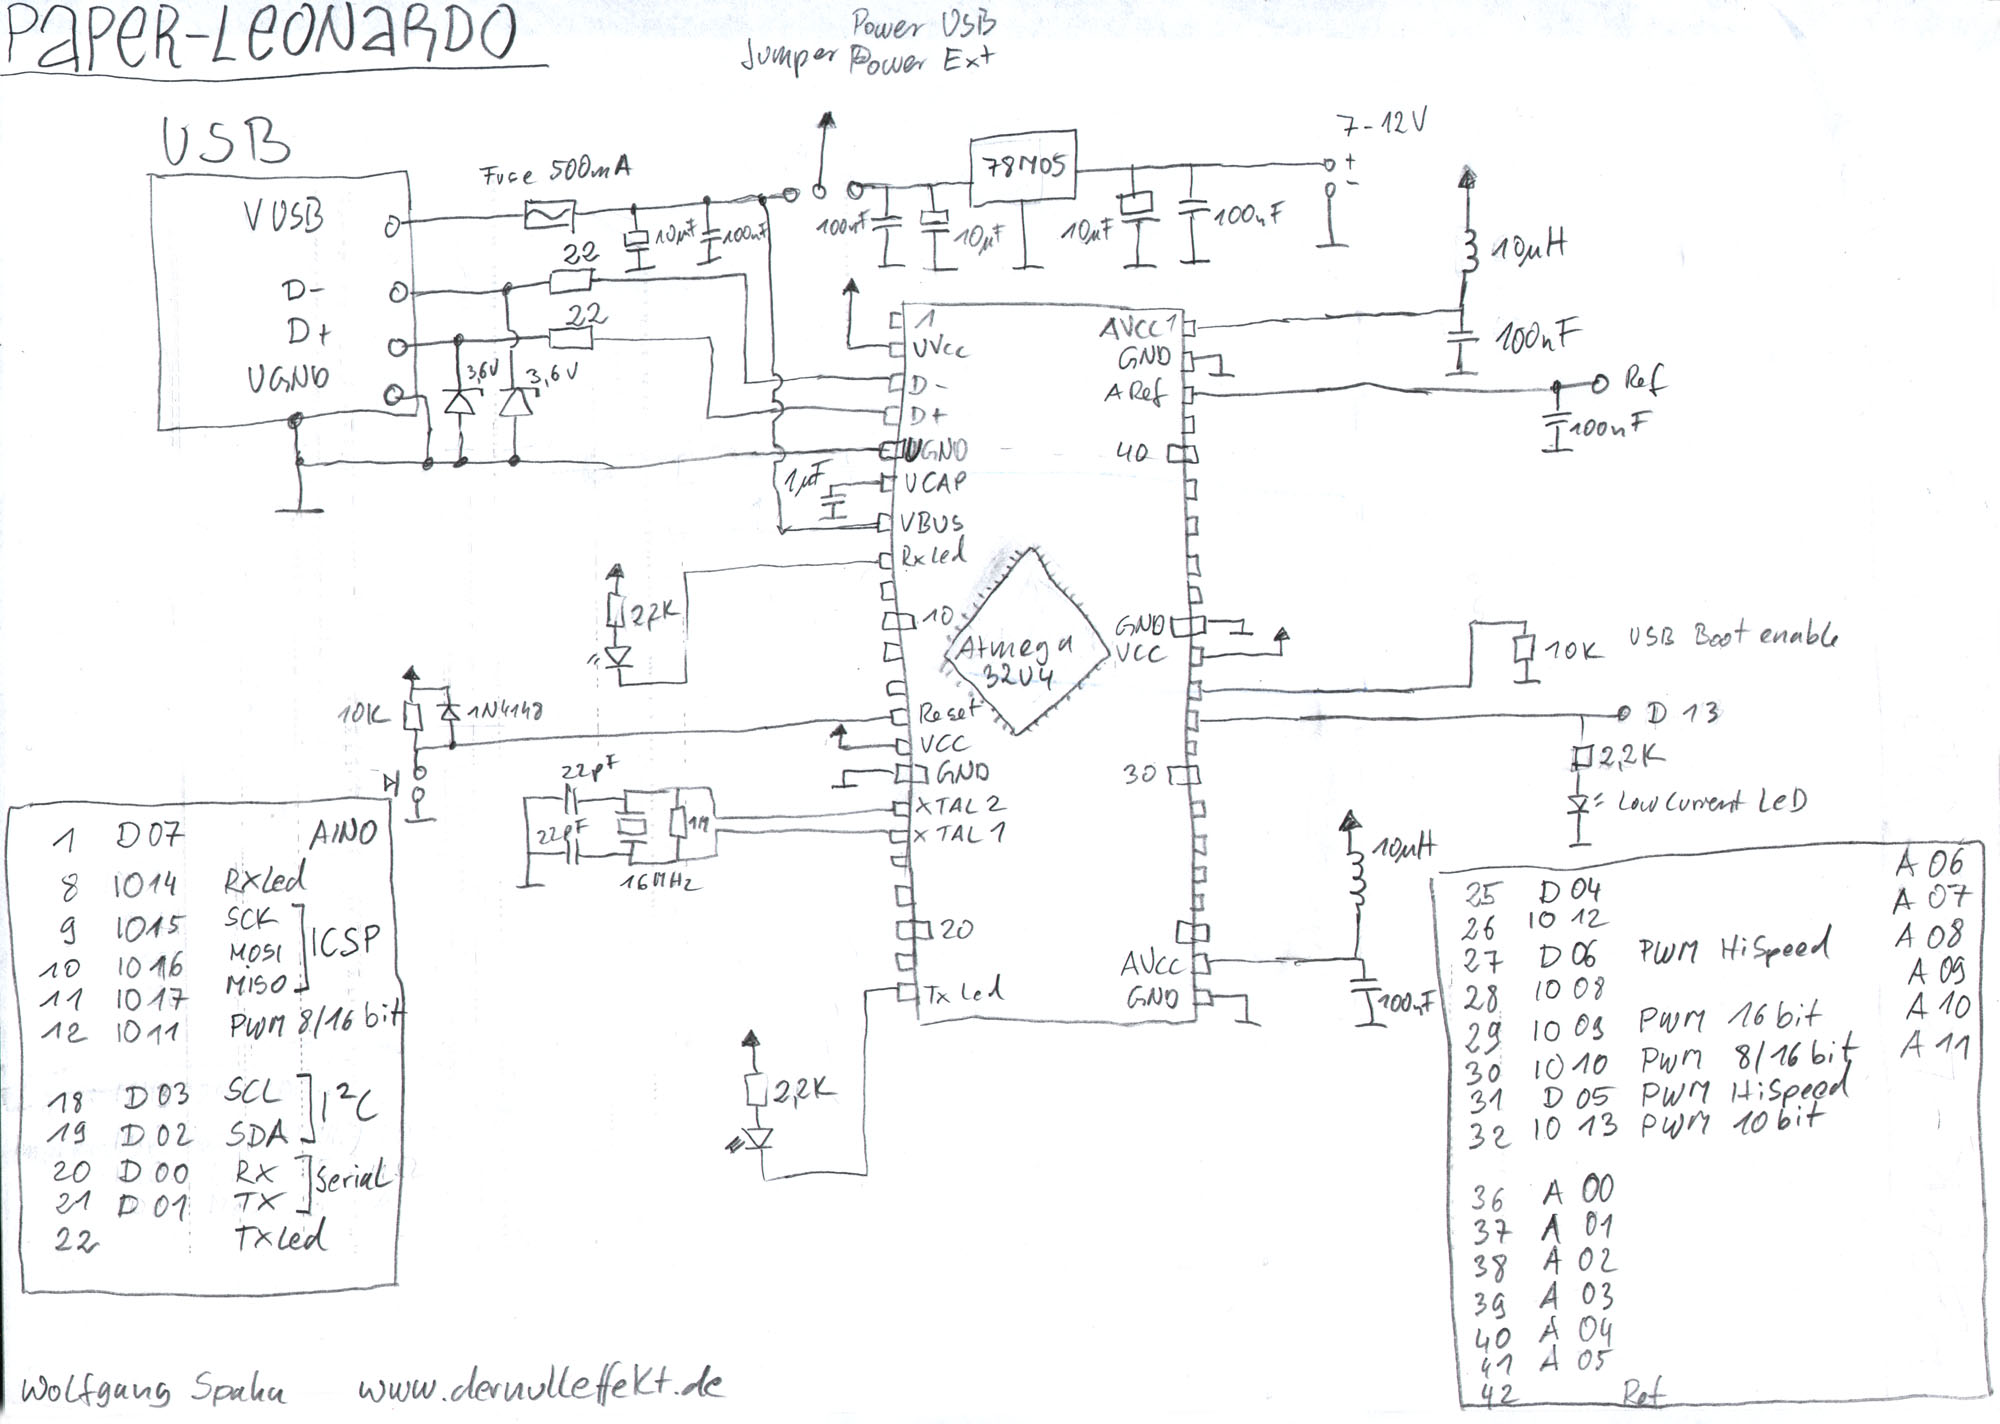 PAPER-LEONARDO
Power USB
Jumper Power Ext
USB
Fuce 500mA
78M05
7-12V
+
-
VUSB
10µF
100nF
100nF
10µF
10µF
100nF
10µH
22
D-
D+
22
UGND
3,6V
3,6V
1
UVcc
D-
D+
UGND
UCAP
1µF
VBUS
RxLed
10
Reset
VCC
GND
XTAL2
XTAL1
20
TxLed
AVCC1
GND
ARef
40
GND
VCC
30
AVCC
GND
Atmega
32U4
100nF
Ref
100nF
2,2K
10K
1N4148
22pF
22pF
1M
16MHz
10K USB Boot enable
D 13
2,2K
Low Current LED
10µH
100nF
2,2K
1 D07 AIN0
8 IO14 RXLed
9 IO15 SCK
10 IO16 MOSI
11 IO17 MISO
ICSP
12 IO11 PWM 8/16 bit
18 D03 SCL
19 D02 SDA
I²C
20 D00 RX
21 D01 TX
Serial
22 TXLed
25 D04 A06
26 IO 12 A07
27 D06 PWM HiSpeed A08
28 IO 08 A09
29 IO 09 PWM 16bit A10
30 IO 10 PWM 8/16bit A11
31 D 05 PWM HiSpeed
32 IO 13 PWM 10bit
36 A 00
37 A 01
38 A 02
39 A 03
40 A 04
41 A 05
42 Ref
Wolfgang Spahn www.dernulleffekt.de